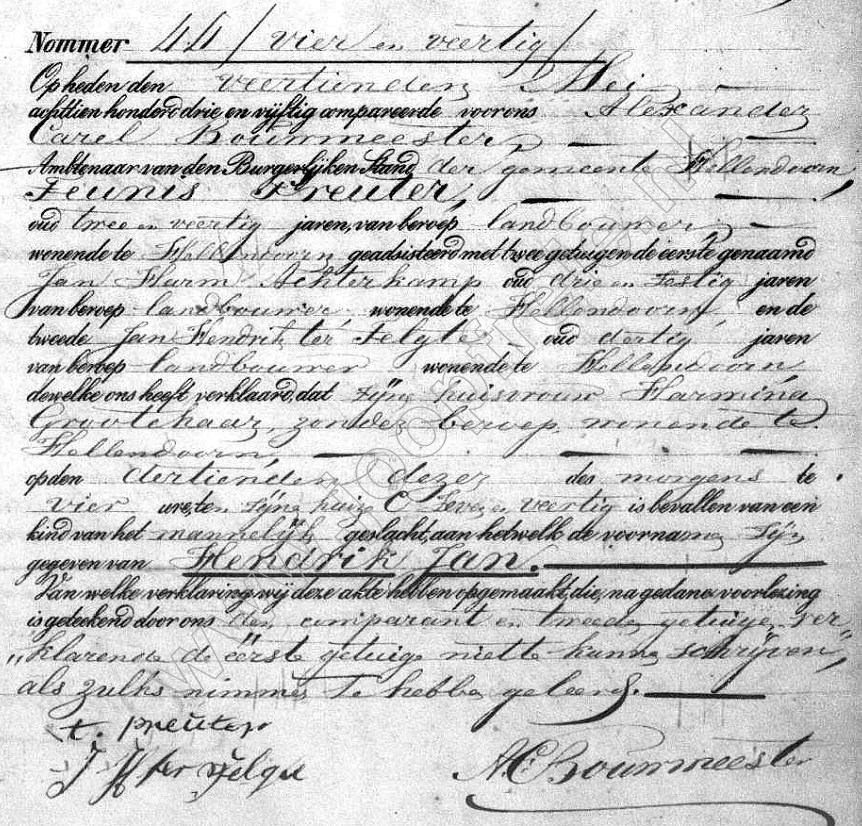 Nommer 44 / vier en veertig /
Op heden den veertienden Mei
achttien honderd drie en vijftig compareerde voor ons Alexander
Carel Bouwmeester,
Ambtenaar van den Burgerlijken Stand der gemeente Hellendoorn,
Teunis Preuter,
oud twee en veertig jaren, van beroep landbouwer,
wonende te Hellendoorn geadsisteerd met twee getuigen de eerste genaamd
Jan Harm Achterkamp oud drie en zestig jaren
van beroep landbouwer, wonende te Hellendoorn, en de
tweede Jan Hendrik ter Telgte oud dertig jaren
van beroep landbouwer wonende te Hellendoorn,
dewelke ons heeft verklaard, dat zijne huisvrouw Harmina
Grootehaar, zonder beroep, wonende te
Hellendoorn,
op den dertienden dezer des morgens te
vier ure, ten zijne huize C zeven en veertig is bevallen van een
kind van het mannelijk geslacht, aan hetwelk de voorname zijn
gegeven van Hendrik Jan.
Van welke verklaring wij deze akte hebben opgemaakt, die, na gedane voorlezing
is geteekend door ons den comparant en tweede getuige, ver
„klarende de eerste getuige niet te kunne schrijven,
als zulks nimmer te hebbe geleerd.
t. preuter
J H ter Telgte
AC Bouwmeester